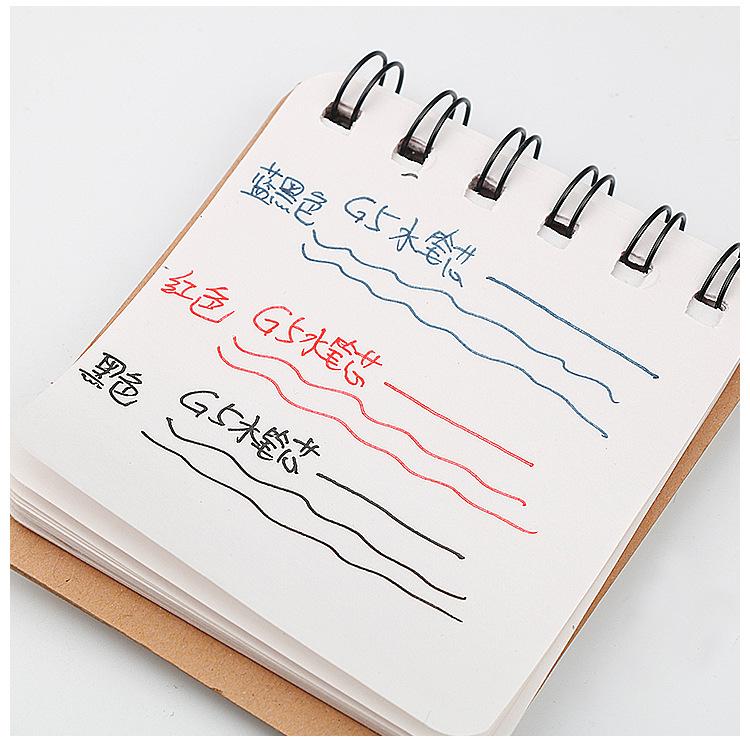 蓝黑色 G5水笔芯
红色 G5水笔芯
黑色 G5水笔芯